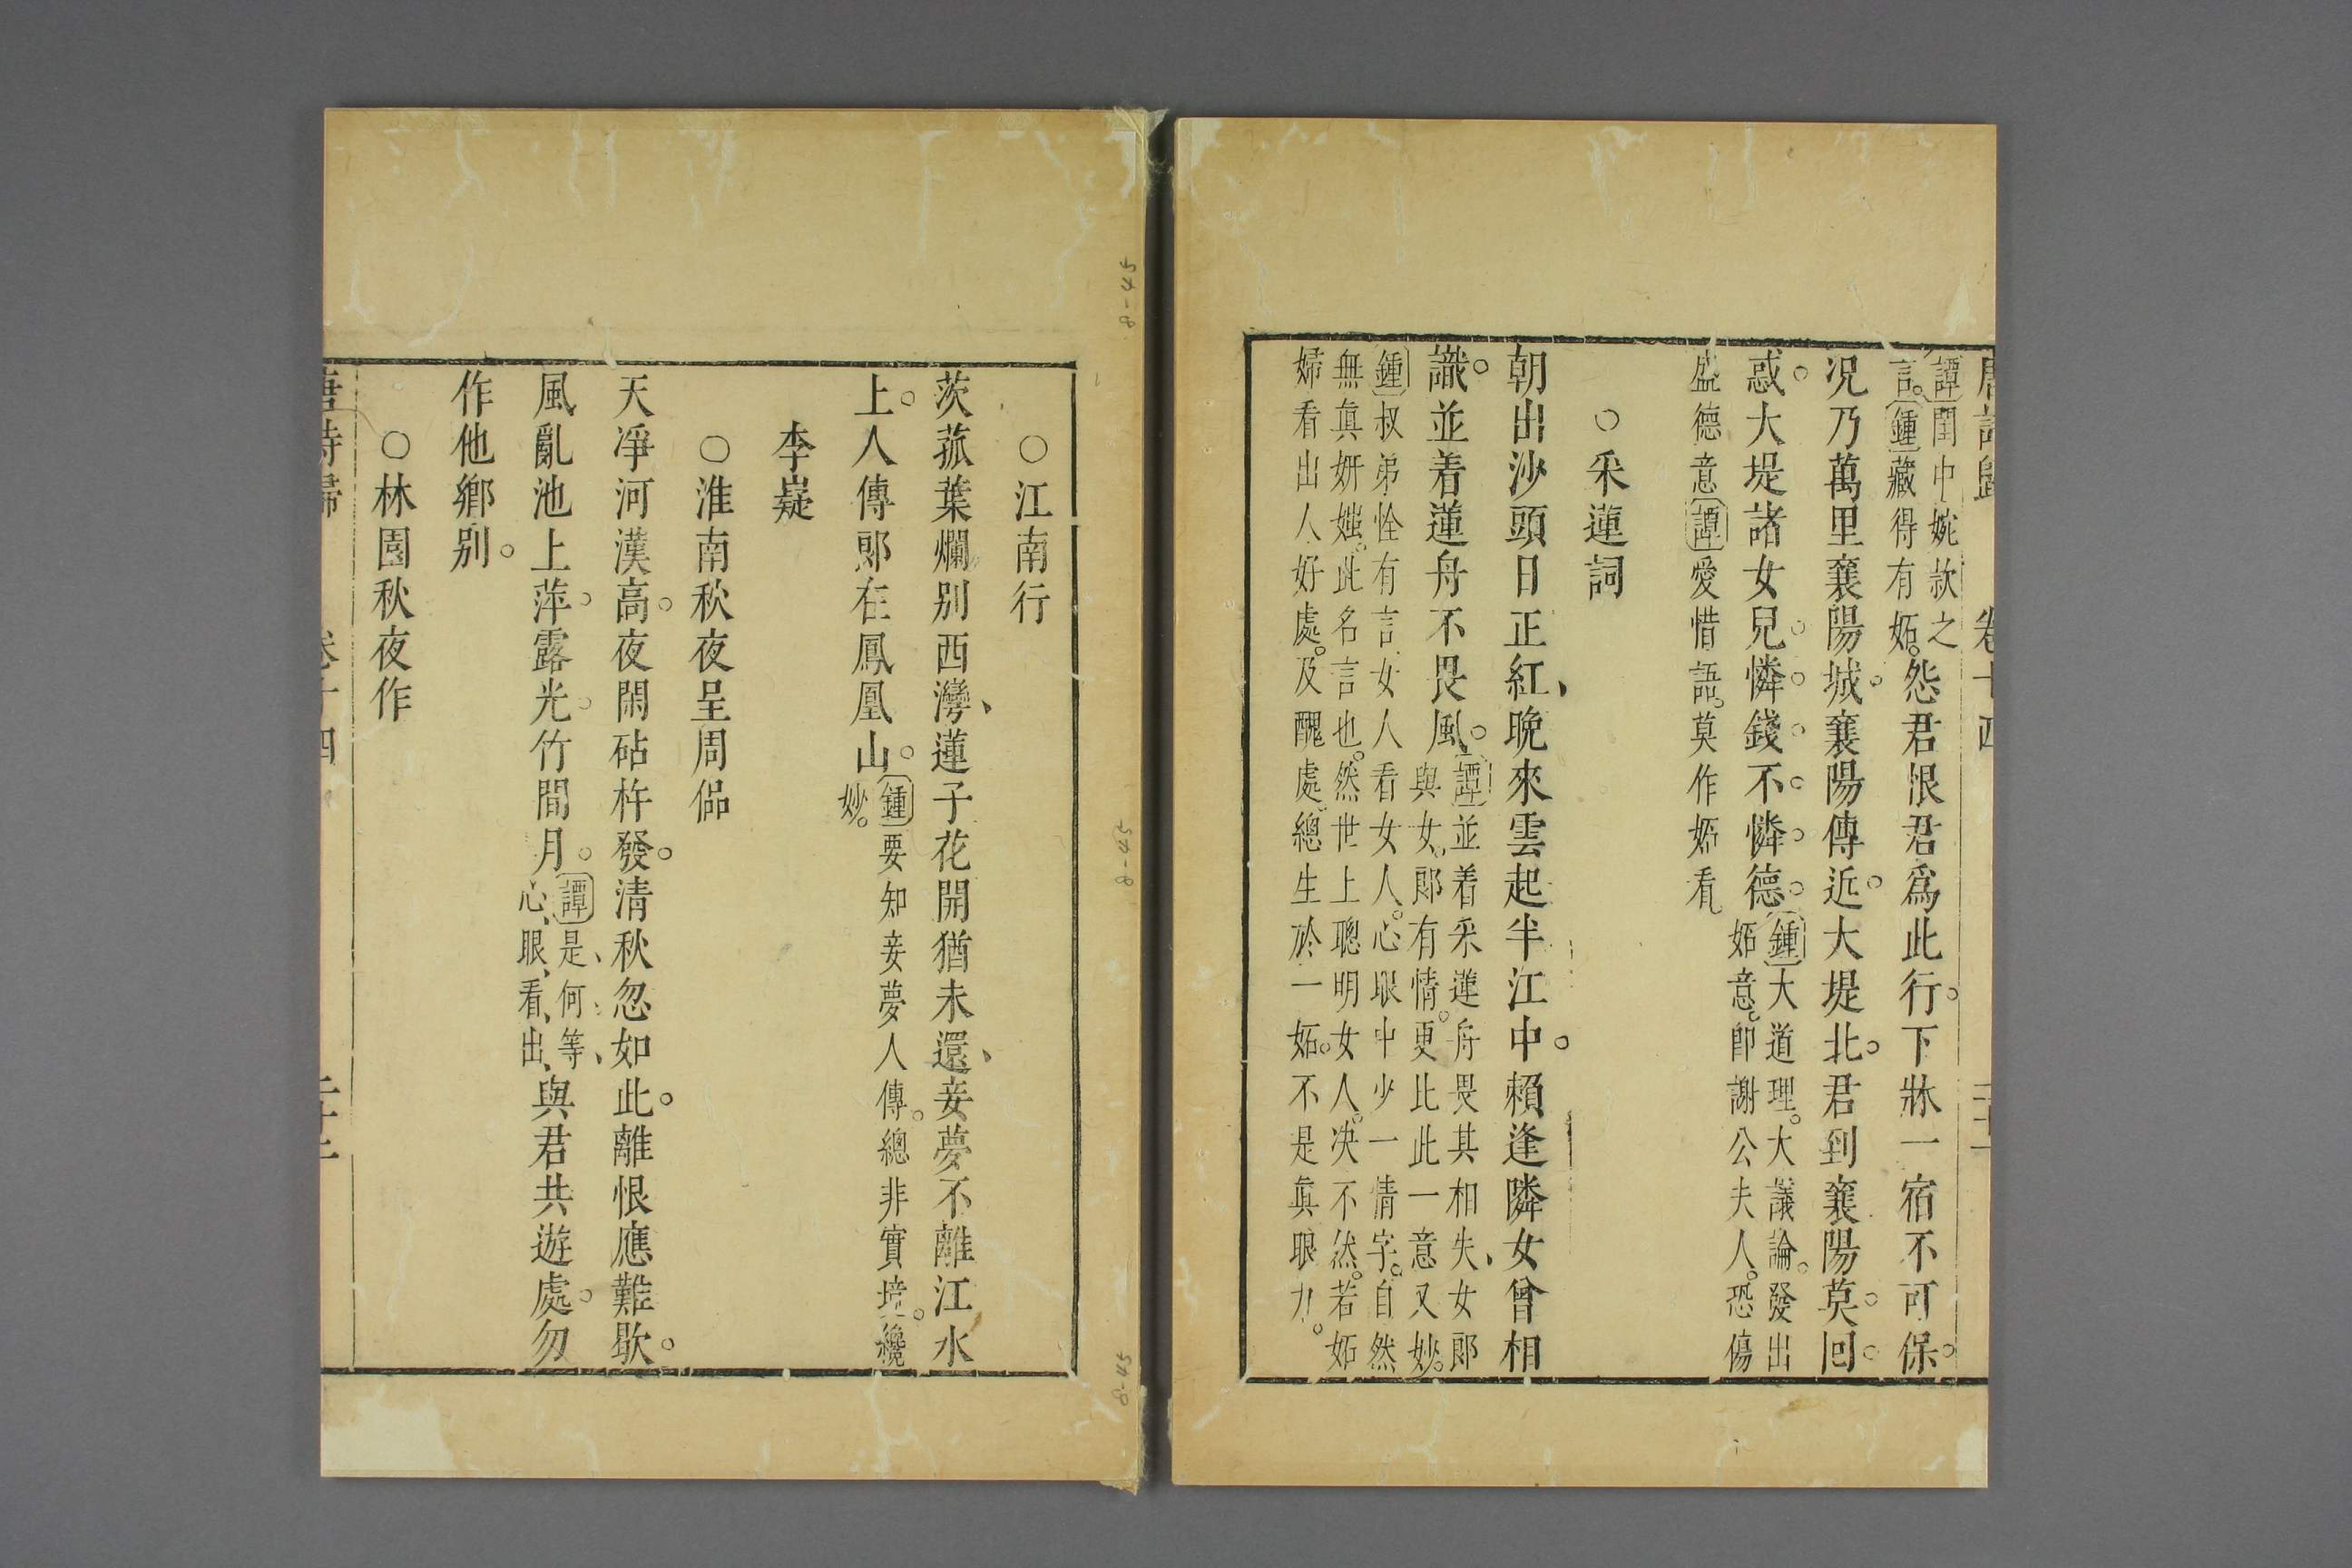 譚閨中婉款之
言。鍾藏得有妬。怨君恨君爲此行。下牀一宿不可保。
况乃萬里襄陽城。襄陽傳近大堤北。君到襄陽莫回
惑。大堤諸女兒。憐錢不憐德。鍾大道理。大議論。發出
妬意。卽謝公夫人。恐傷
盛德意譚愛惜語。莫作妬看。
○采蓮詞
朝出沙頭日正紅、晚來雲起半江中。賴逢隣女曾相
識。並着蓮舟不畏風。譚並着采蓮舟畏其相失、女郎
與女郎有情。更比此一意又妙。
鍾叔弟恮有言女人看女人。心眼中少一情字。自然
無眞妍媸。此名言也。然世上聰明女人。决不然。若妬
婦看出人好處。及醜處總生於一妬。不是眞眼力。
○江南行
茨菰葉爛别西灣、蓮子花開猶未還、妾夢不離江水
上。人傳郎在鳳凰山。鍾要知妾夢人傳。總非實境。纔
妙。
李嶷
○淮南秋夜呈周侣
天凈河漢高。夜閑砧杵發。清秋忽如此。離恨應難歇。
風亂池上萍。露光竹間月。譚是、何等、
心、眼、看、出、與君共遊處。勿
作他鄉别。
○林園秋夜作
唐詩歸 卷十四